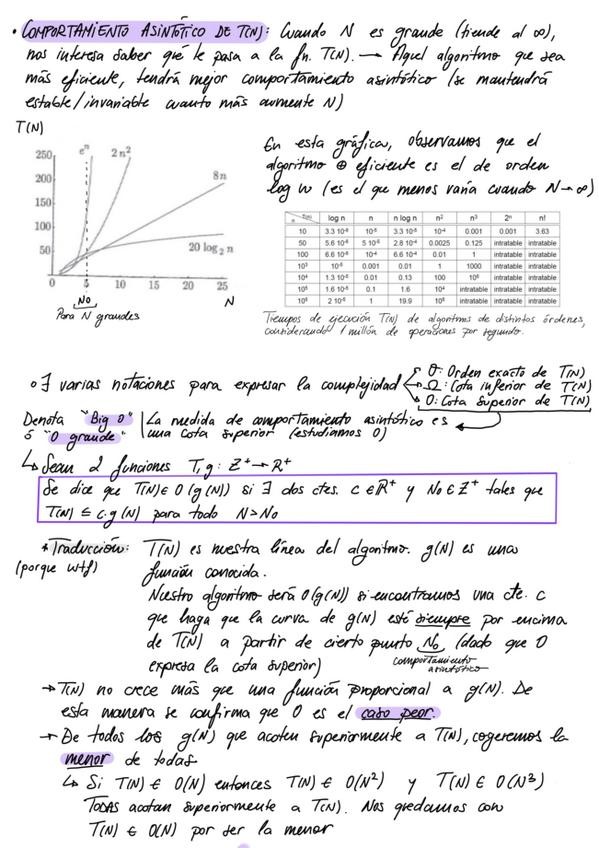 • COMPORTAMIENTO ASINTÓTICO DE T(N): Cuando N es grande (tiende al ∞),
nos interesa saber qué le pasa a la fn. T(N). → Aquel algoritmo que sea
más eficiente, tendrá mejor comportamiento asintótico (se mantendrá
estable/invariable cuanto más aumente N)
T(N)
250
200
150
100
50
eⁿ
2n²
8n
20 log₂ n
5
10
15
20
25
N₀
N
Para N grandes
En esta gráfica, observamos que el
algoritmo ⊕ eficiente es el de orden
log n (es el que menos varía cuando N→∞)
n T(n) log n n n log n n² n³ 2ⁿ n!
10 3.3 10⁻⁶ 10⁻⁵ 3.3 10⁻⁵ 10⁻⁴ 0.001 0.001 3.63
50 5.6 10⁻⁶ 5 10⁻⁵ 2.8 10⁻⁴ 0.0025 0.125 intratable intratable
100 6.6 10⁻⁶ 10⁻⁴ 6.6 10⁻⁴ 0.01 1 intratable intratable
10³ 10⁻⁵ 0.001 0.01 1 1000 intratable intratable
10⁴ 1.3 10⁻⁵ 0.01 0.13 100 10⁶ intratable intratable
10⁵ 1.6 10⁻⁵ 0.1 1.6 10⁴ intratable intratable intratable
10⁶ 2 10⁻⁵ 1 19.9 10⁶ intratable intratable intratable
Tiempos de ejecución T(N) de algoritmos de distintos órdenes,
considerando 1 millón de operaciones por segundo.
o ∃ varias notaciones para expresar la complejidad
Θ: Orden exacto de T(N)
Ω: Cota inferior de T(N)
O: Cota Superior de T(N)
Denota "Big O" | La medida de comportamiento asintótico es
ó "O grande" | una cota superior (estudiamos O)
↳ Sean 2 funciones T, g: Z⁺ → R⁺
Se dice que T(N) ∈ O(g(N)) si ∃ dos ctes. c ∈ R⁺ y N₀ ∈ Z⁺ tales que
T(N) ≤ c·g(N) para todo N > N₀
* Traducción: T(N) es nuestra línea del algoritmo. g(N) es una
(porque wtf) función conocida.
Nuestro algoritmo será O(g(N)) si encontramos una cte. c
que haga que la curva de g(N) esté siempre por encima
de T(N) a partir de cierto punto N₀ (dado que O
expresa la cota superior)
comportamiento
asintótico
→ T(N) no crece más que una función proporcional a g(N). De
esta manera se confirma que O es el caso peor.
→ De todos los g(N) que acoten superiormente a T(N), cogeremos la
menor de todas
↳ Si T(N) ∈ O(N) entonces T(N) ∈ O(N²) y T(N) ∈ O(N³)
TODAS acotan superiormente a T(N). Nos quedamos con
T(N) ∈ O(N) por ser la menor